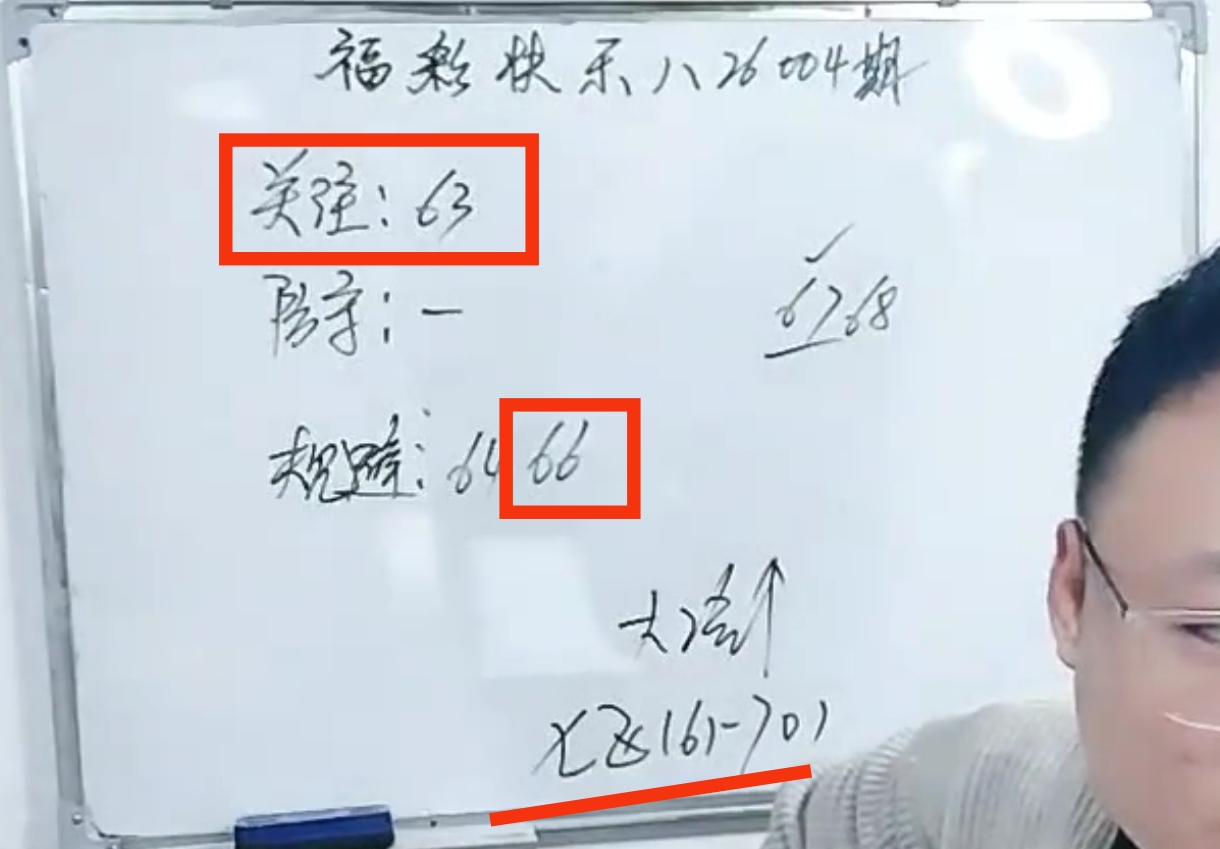 福彩快乐八26004期
关注：63
防守：一
6768
规避：64 66
大冷↑
七区(61-70)